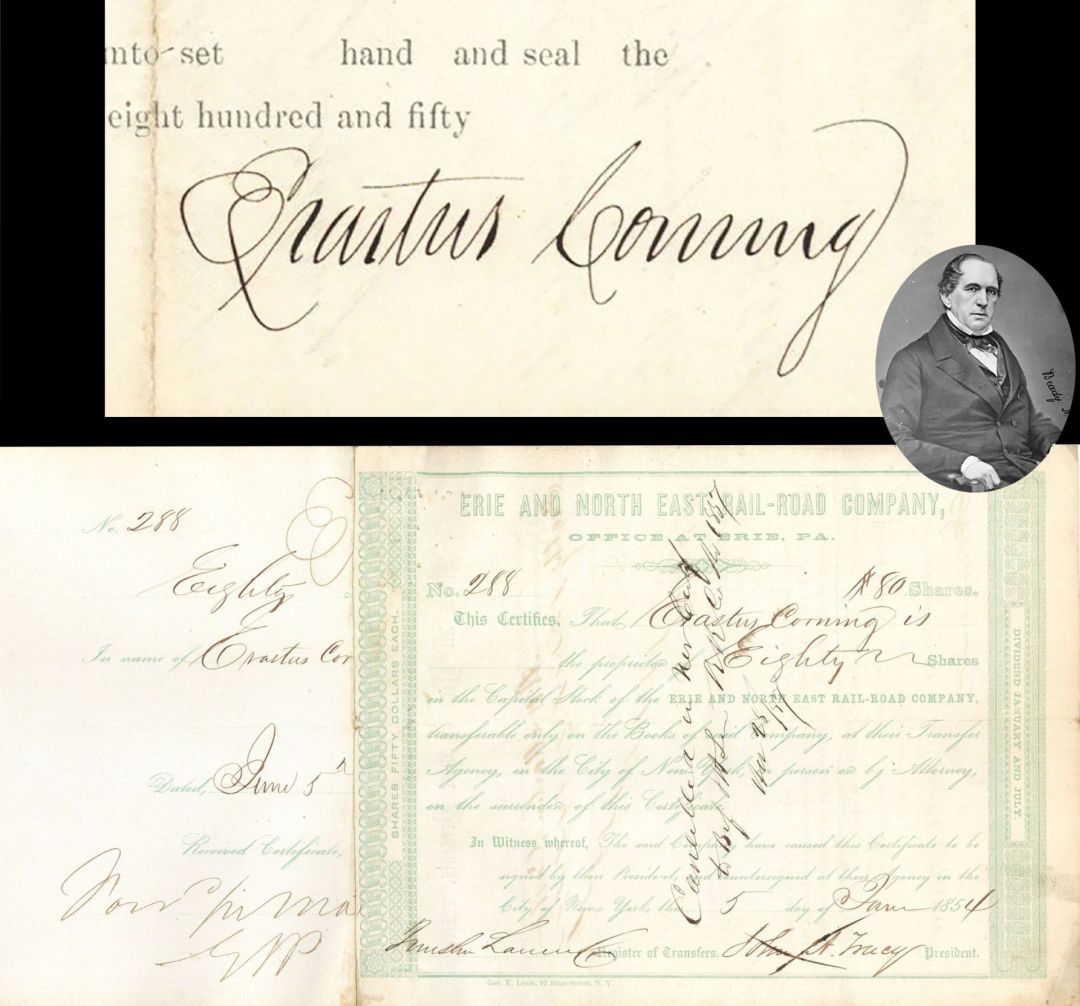 nto set hand and seal the
eight hundred and fifty
Erastus Corning
Brady
No. 288
Eighty
In name of Erastus Cor
Dated, June 5
Received Certificate,
SHARES FIFTY DOLLARS EACH.
ERIE AND NORTH EAST RAIL-ROAD COMPANY,
OFFICE AT ERIE, PA.
No. 288 80 Shares.
This Certifies, That Erastus Corning is
the proprietor of Eighty Shares
in the Capital Stock of the ERIE AND NORTH EAST RAIL-ROAD COMPANY,
transferable only on the Books of said Company, at their Transfer
Agency, in the City of New York, in person or by Attorney,
on the surrender of this Certificate
In Witness whereof, The said Company have caused this Certificate to be
signed by their President, and countersigned at their Agency in the
City of New York, this 5 day of June 1854
Register of Transfers. John A. Tracy President.
Geo. E. Leefe, 93 John-street, N. Y.
DIVIDEND JANUARY AND JULY
Cancelled